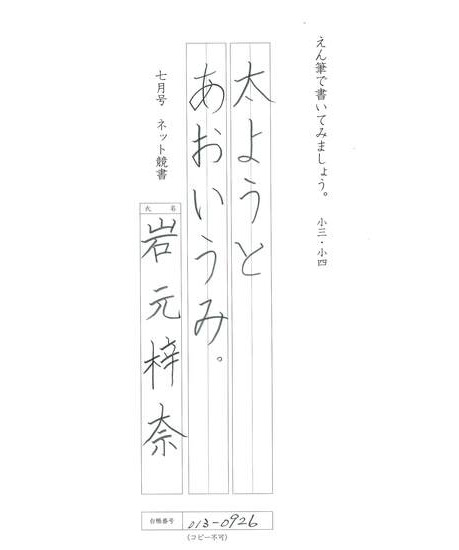 えん筆で書いてみましょう。 小三・小四
太ようと
あおいうみ。
七月号 ネット競書
氏名
岩元梓奈
台帳番号 013-0926
(コピー不可)